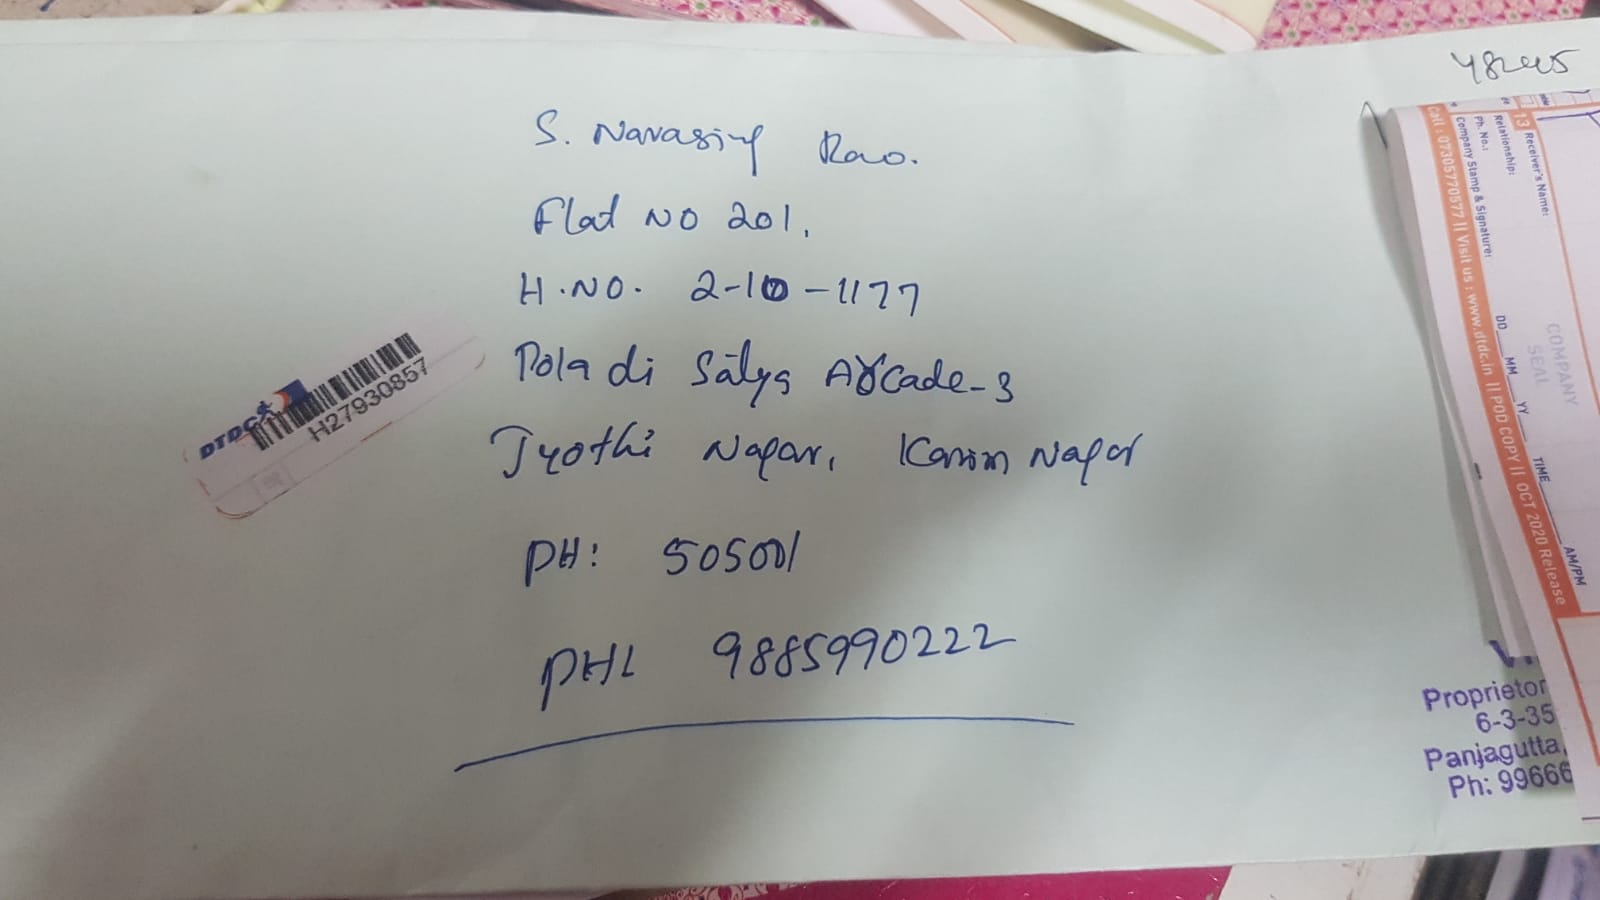 48245
S. Narasing Rao.
Flat NO 201,
H.NO. 2-10-1177
Poladi Satya Arcade-3
Jyothi Nagar, Karim Nagar
PH: 505001
PH: 9885990222
DTDC
H27930857
13 Receiver's Name:
Relationship:
Ph. No.:
Company Stamp & Signature:
DD MM YY TIME AM/PM
COMPANY
SEAL
Call : 07305770577 || Visit us : www.dtdc.in || POD COPY || OCT 2020 Release
Proprietor
6-3-35
Panjagutta,
Ph: 99666